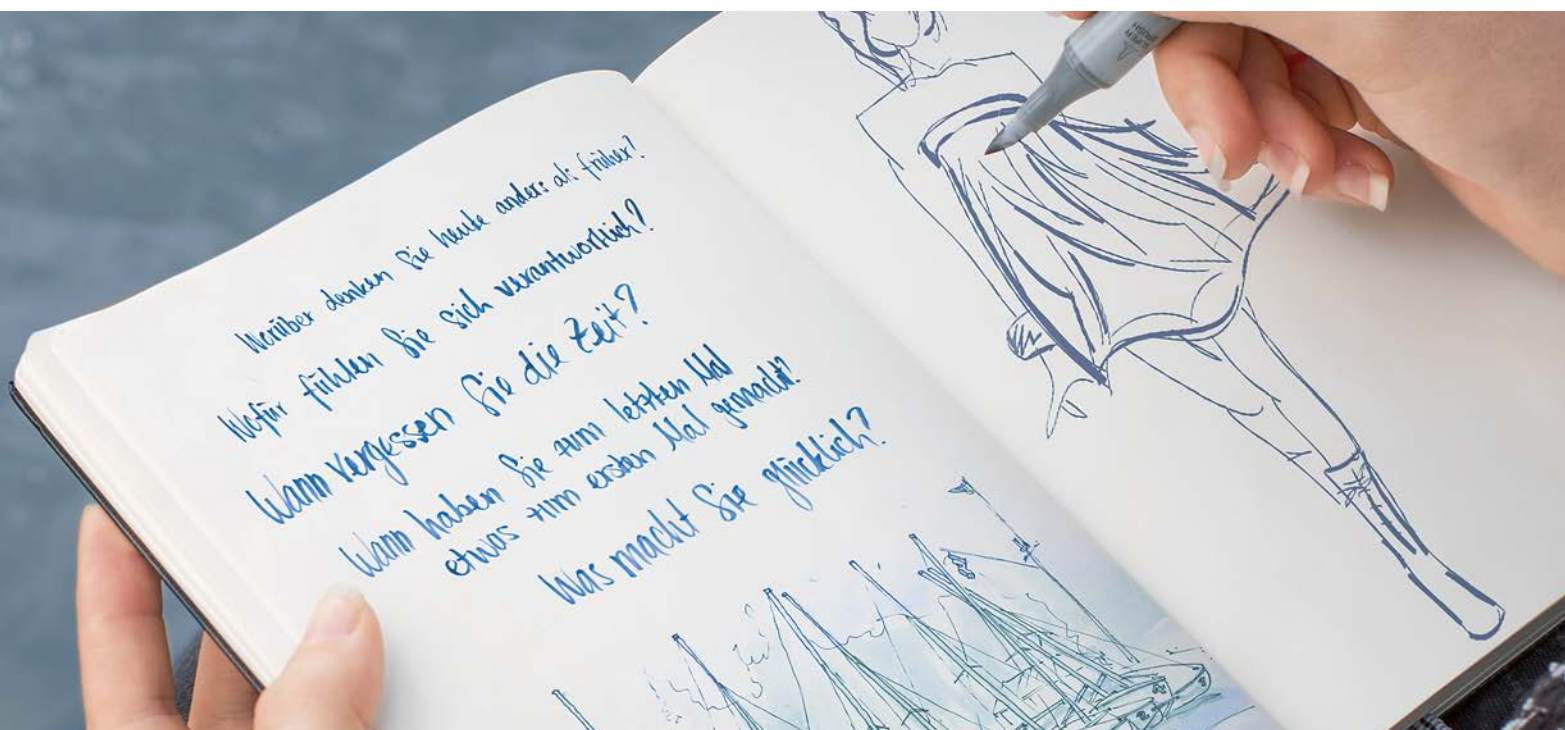 Worüber denken Sie heute anders als früher?
Wofür fühlen Sie sich verantwortlich?
Wann vergessen Sie die Zeit?
Wann haben Sie zum letzten Mal
etwas zum ersten Mal gemacht?
Was macht Sie glücklich?